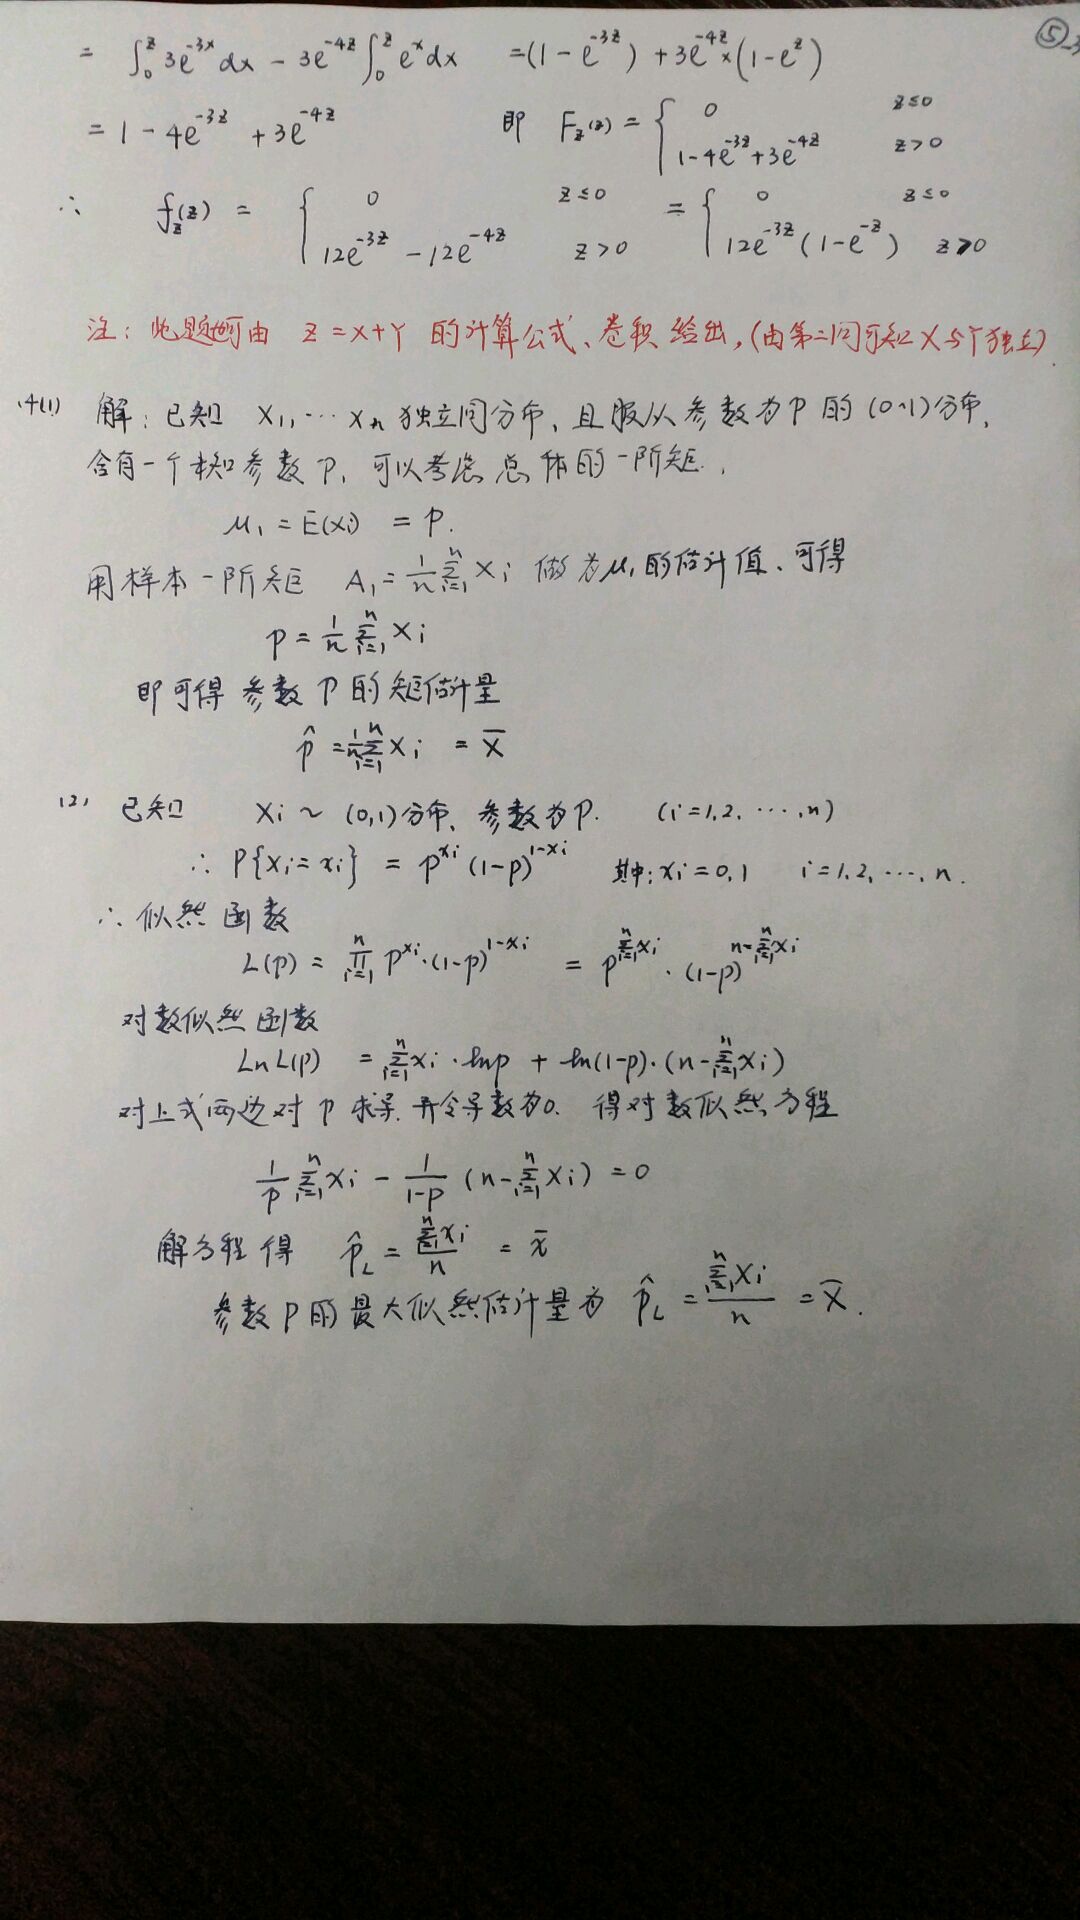 ⑤-3
= ∫₀ᶻ 3e^{-3x}dx - 3e^{-4z}∫₀ᶻ e^x dx = (1-e^{-3z}) + 3e^{-4z}×(1-e^z)
= 1-4e^{-3z}+3e^{-4z} 即 F_Z(z) = { 0 z≤0 ; 1-4e^{-3z}+3e^{-4z} z>0
∴ f_Z(z) = { 0 z≤0 ; 12e^{-3z}-12e^{-4z} z>0 = { 0 z≤0 ; 12e^{-3z}(1-e^{-z}) z>0
注: 此题也可由 Z=X+Y 的计算公式、卷积给出,(由第二问可知X与Y独立)
14(1) 解: 已知 X₁,…Xₙ 独立同分布, 且服从参数为P的(0-1)分布,
含有一个未知参数P, 可以考虑总体的一阶矩,
μ₁ = E(Xi) = P.
用样本一阶矩 A₁ = \frac{1}{n}∑_{i=1}^{n} Xi 做为μ₁的估计值, 可得
p = \frac{1}{n}∑_{i=1}^{n} Xi
即可得参数P的矩估计量
p̂ = \frac{1}{n}∑_{i=1}^{n} Xi = X̄
(2) 已知 Xi ~ (0,1)分布, 参数为P. (i=1,2,…,n)
∴ P{Xi=xi} = p^{xi}(1-p)^{1-xi} 其中: xi=0,1 i=1,2,…,n.
∴ 似然函数
L(p) = ∏_{i=1}^{n} p^{xi}·(1-p)^{1-xi} = p^{∑_{i=1}^{n}xi}·(1-p)^{n-∑_{i=1}^{n}xi}
对数似然函数
Ln L(p) = ∑_{i=1}^{n}xi·lnp + ln(1-p)·(n-∑_{i=1}^{n}xi)
对上式两边对P求导, 并令导数为0. 得对数似然方程
\frac{1}{p}∑_{i=1}^{n}xi - \frac{1}{1-p}(n-∑_{i=1}^{n}xi) = 0
解方程得 p̂_L = \frac{∑_{i=1}^{n}xi}{n} = x̄
参数P的最大似然估计量为 p̂_L = \frac{∑_{i=1}^{n}Xi}{n} = X̄.